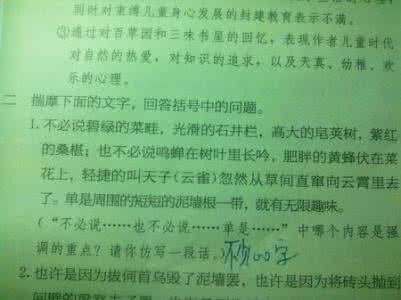 同时对束缚儿童身心发展的封建教育表示不满。
③通过对百草园和三味书屋的回忆，表现作者儿童时代
对自然的热爱，对知识的追求，以及天真、幼稚、欢
乐的心理。
二 揣摩下面的文字，回答括号中的问题。
1. 不必说碧绿的菜畦，光滑的石井栏，高大的皂荚树，紫红
的桑椹；也不必说鸣蝉在树叶里长吟，肥胖的黄蜂伏在菜
花上，轻捷的叫天子（云雀）忽然从草间直窜向云霄里去
了。单是周围的短短的泥墙根一带，就有无限趣味。
（“不必说……也不必说……单是……”中哪个内容是强
调的重点？请你仿写一段话。）
2. 也许是因为拔何首乌毁了泥墙罢，也许是因为将砖头抛到